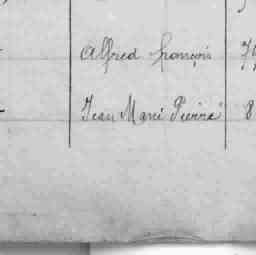 Alfred françois 7
Jean Marie Pierre 8